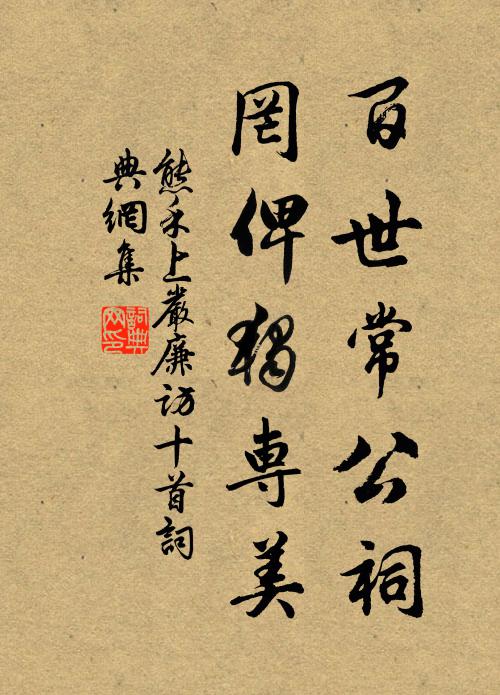 百世常公祠
罔俾獨專美
熊禾上嚴廉訪十首詞
典網集
詞典
网印